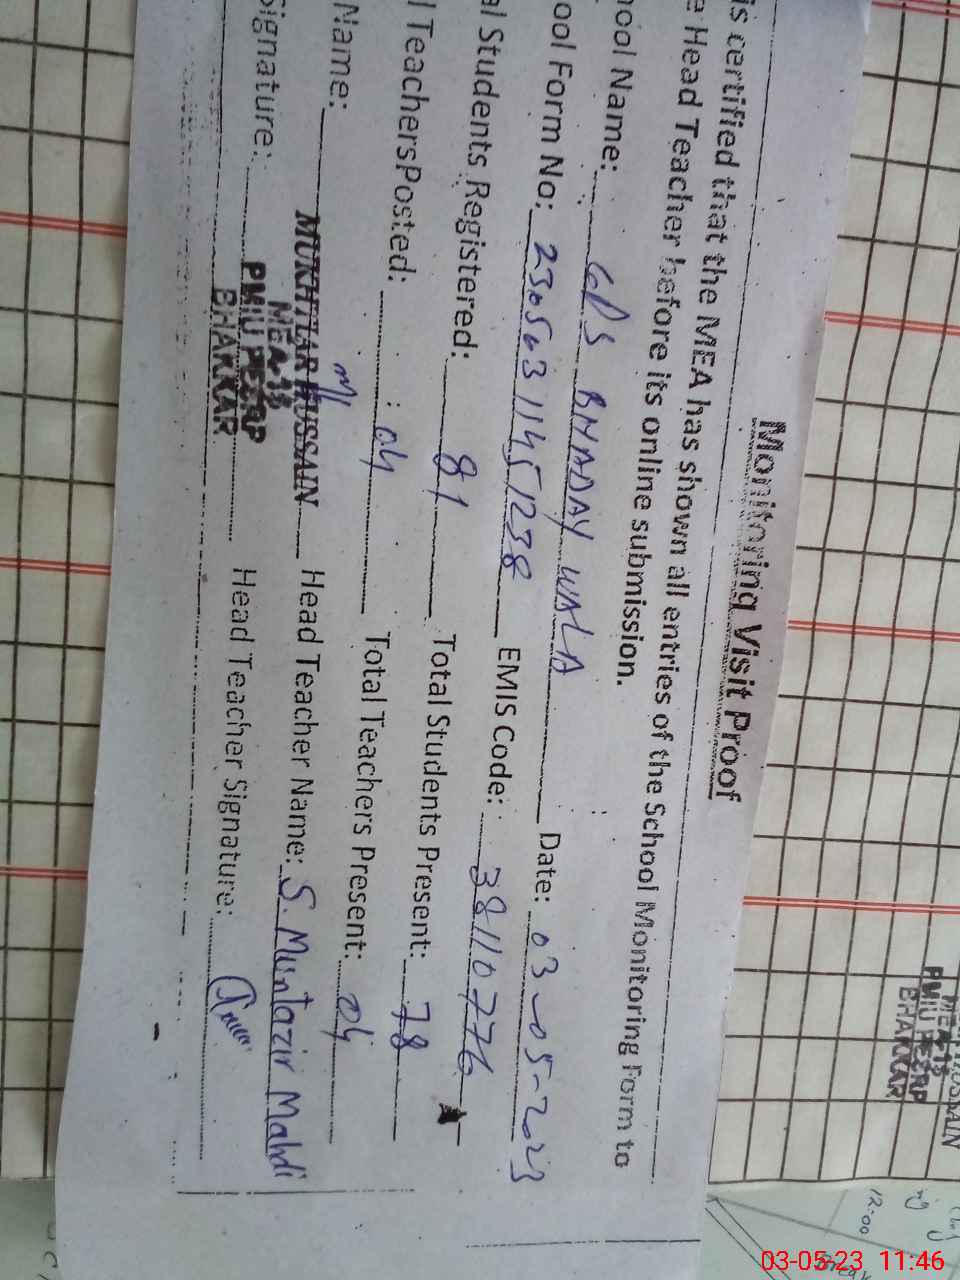 Monitoring Visit Proof
is certified that the MEA has shown all entries of the School Monitoring Form to
Head Teacher before its online submission.
ool Name: GPS BHADAY WALA Date: 03-05-2023
ool Form No: 230503 1145 1238 EMIS Code: 38110776
al Students Registered: 81 Total Students Present: 78
l Teachers Posted: 04 Total Teachers Present: 04
Name: MUKHTAR HUSSAIN Head Teacher Name: S. Muntazir Mahdi
MEA-18
ignature: PMIU PESRP Head Teacher Signature:
BHAKKAR
HUSSAIN
MEA-18
PMIU PESRP
BHAKKAR
12:00
03-05-23 11:46